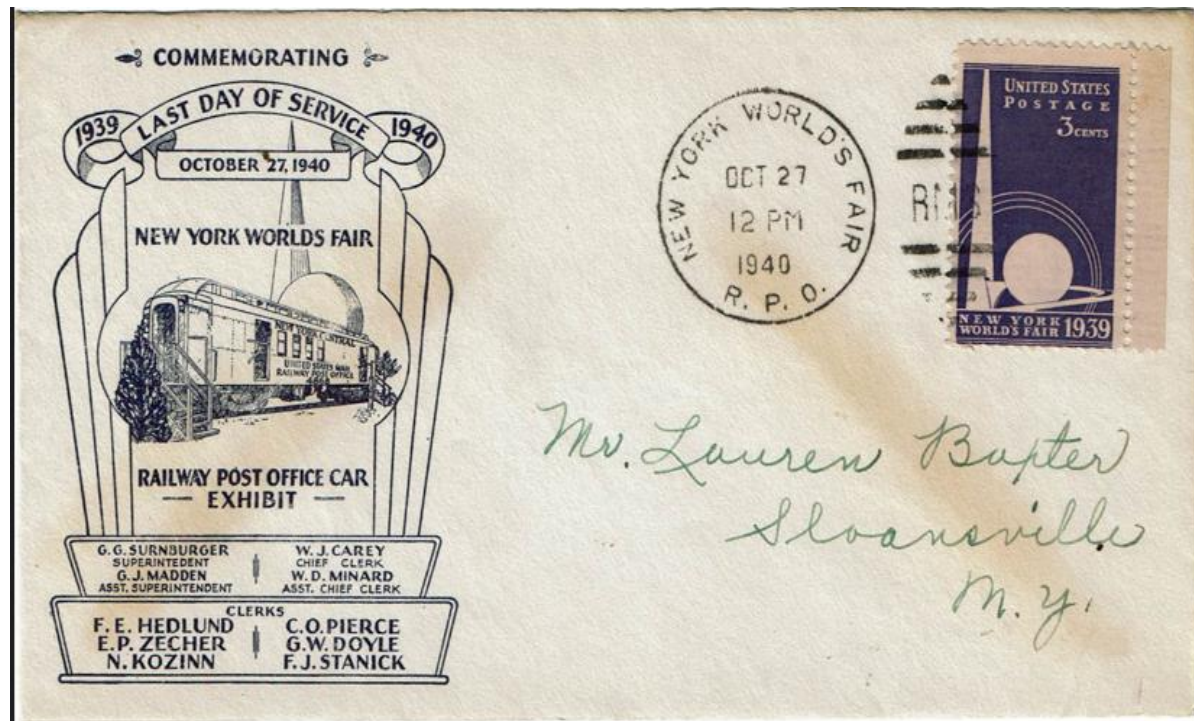 COMMEMORATING
LAST DAY OF SERVICE
1939 1940
OCTOBER 27, 1940
NEW YORK WORLDS FAIR
NEW YORK CENTRAL
UNITED STATES MAIL
RAILWAY POST OFFICE
RAILWAY POST OFFICE CAR
EXHIBIT
G. G. SURNBURGER
SUPERINTEDENT
G. J. MADDEN
ASST. SUPERINTENDENT
W. J. CAREY
CHIEF CLERK
W. D. MINARD
ASST. CHIEF CLERK
CLERKS
F. E. HEDLUND
E. P. ZECHER
N. KOZINN
C. O. PIERCE
G. W. DOYLE
F. J. STANICK
NEW YORK WORLD'S FAIR
OCT 27
12 PM
1940
R. P. O.
RMS
UNITED STATES
POSTAGE
3 CENTS
NEW YORK
WORLD'S FAIR 1939
Mr. Lauren Baxter
Sloansville
N. Y.